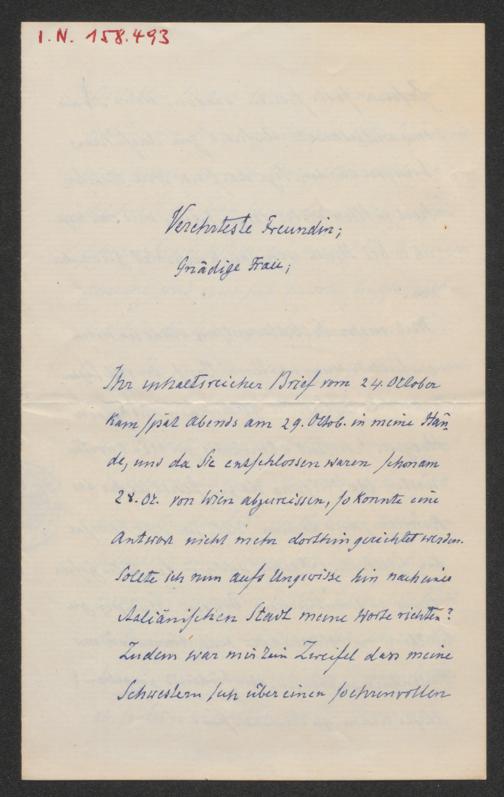 I.N. 158.493
Verehrteste Freundin;
Gnädige Frau;
Ihr inhaltsreicher Brief vom 24. October
kam spät Abends am 29. Octob. in meine Hän
de, und da Sie entschlossen waren schon am
28. Oz. von Wien abzureissen, so konnte eine
Antwort nicht mehr dorthin gerichtet werden.
Sollte ich nun aufs Ungewisse hin nach einer
italiänischen Stadt meine Worte richten?
Zudem war mir kein Zweifel dass meine
Schwestern sich über einen so ehrenvollen